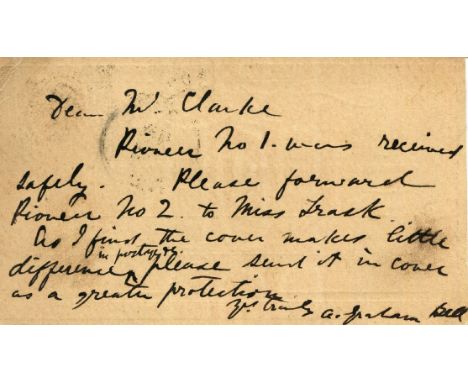 Dear Mr. Clarke
Pioneer No 1. was received
safely. Please forward
Pioneer No 2. to Miss Trask.
As I find the cover makes little
in postage
difference, please send it in cover
as a greater protection
Yrs truly A. Graham Bell